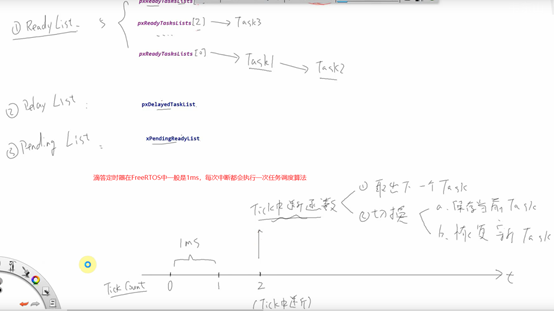 ① ReadyList
pxReadyTasksLists
pxReadyTasksLists[2] → Task3
....
pxReadyTasksLists[0] → Task1 → Task2
② Delay List : pxDelayedTaskList
③ Pending List : xPendingReadyList
滴答定时器在FreeRTOS中一般是1ms，每次中断都会执行一次任务调度算法
① 取出下一个Task
Tick中断
② 切换
a. 保存当前Task
b. 恢复新Task
1ms
Tick Count 0 1 2 t
(Tick中断)